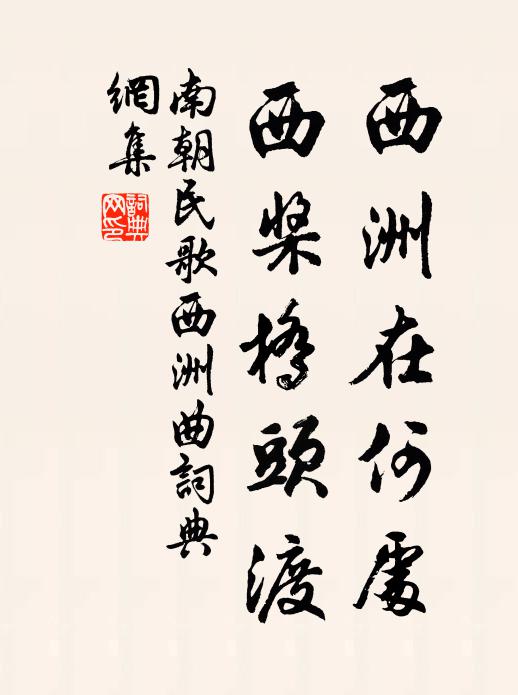 西洲在何處
西槳橋頭渡
南朝民歌西洲曲詞典
網集
詞典
网印